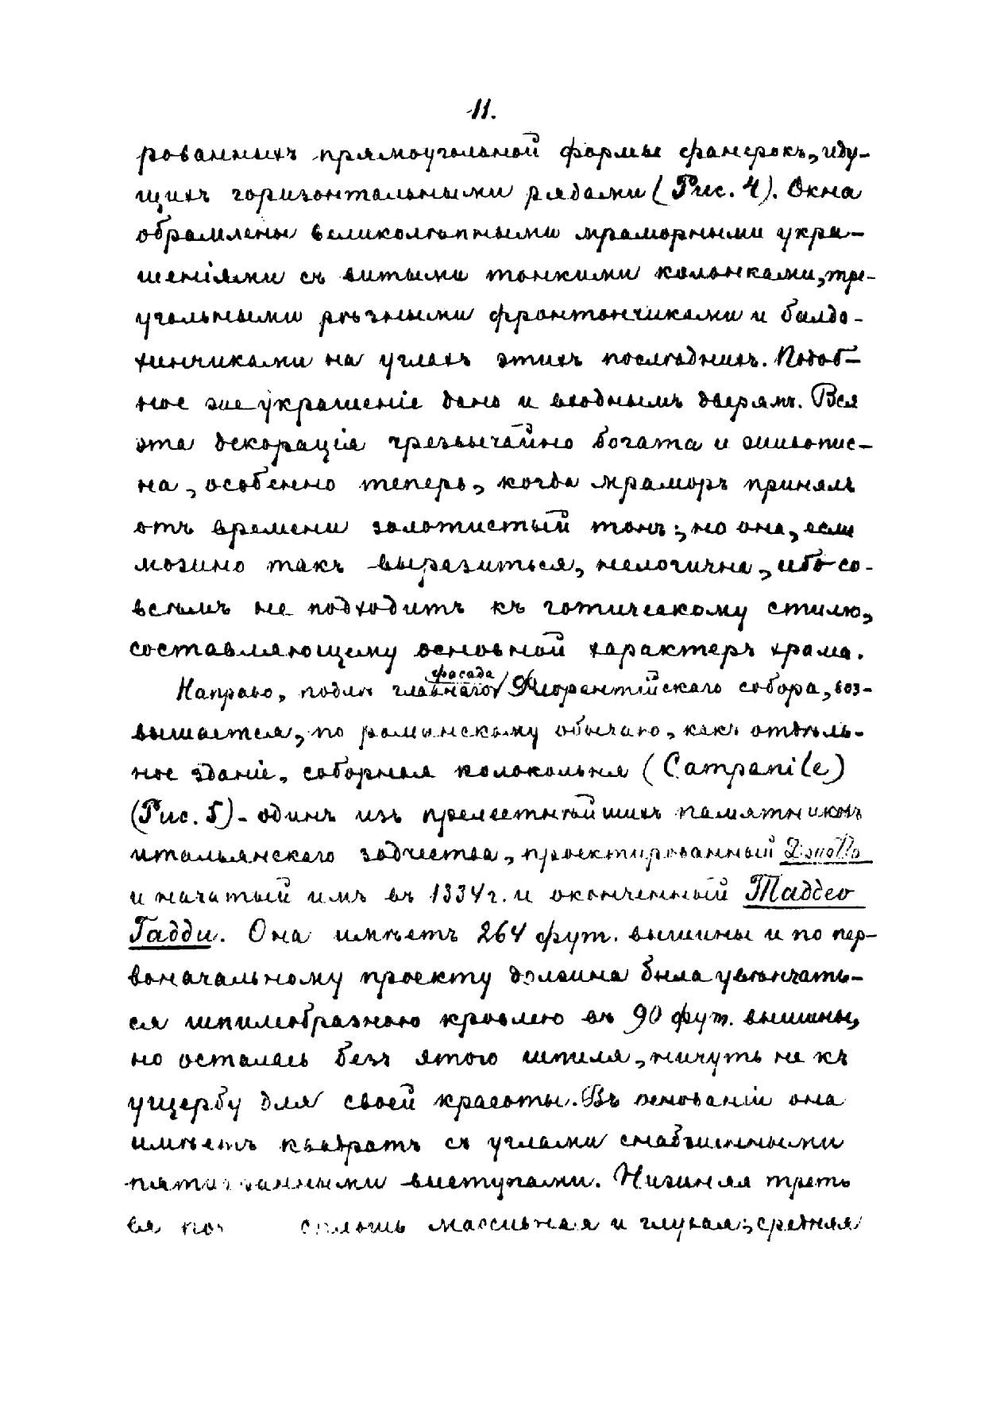 11.
рованныхъ прямоугольной формы фанерокъ, иду-
щихъ горизонтальными рядами (Рис. 4). Окна
обрамлены великолѣпными мраморными укра-
шеніями съ витыми тонкими колонками, тре-
угольными рѣзными фронтончиками и балда-
хинчиками на углахъ этихъ послѣднихъ. Подоб-
ное же украшеніе дано и входнымъ дверямъ. Вся
эта декорація чрезвычайно богата и живопис-
на, особенно теперь, когда мраморъ принялъ
отъ времени золотистый тонъ; но она, если
можно такъ выразиться, нелогична, ибо со-
всѣмъ не подходитъ къ готическому стилю,
составляющему основной характеръ храма.
фасада
Направо, подлѣ главнаго Флорентійскаго собора, воз-
вышается, по романскому обычаю, какъ отдѣль-
ное зданіе, соборная колокольня (Campanile)
(Рис. 5) - одинъ изъ прелестнѣйшихъ памятниковъ
итальянскаго зодчества, проектированный Джотто
и начатый имъ въ 1334 г. и оконченный Таддео
Гадди. Она имѣетъ 264 фут. вышины и по пер-
воначальному проекту должна была увѣнчать-
ся шпилеобразною кровлею въ 90 фут. вышины,
но осталась безъ этого шпиля, ничуть не къ
ущербу для своей красоты. Въ основаніи она
имѣетъ квадратъ съ углами снабженными
выступами. Нижняя треть
ея сплошь массивная и глухая; средняя